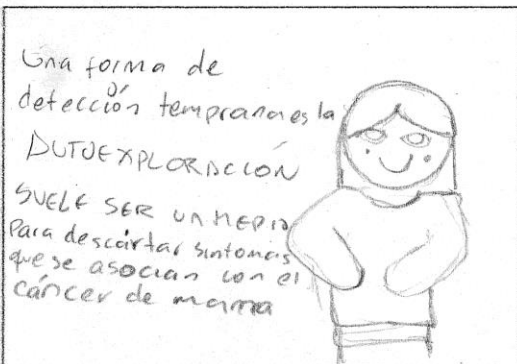 Una forma de
detección temprana es la
AUTOEXPLORACIÓN
SUELE SER UN MEDIO
Para descartar sintomas
que se asocian con el
cáncer de mama